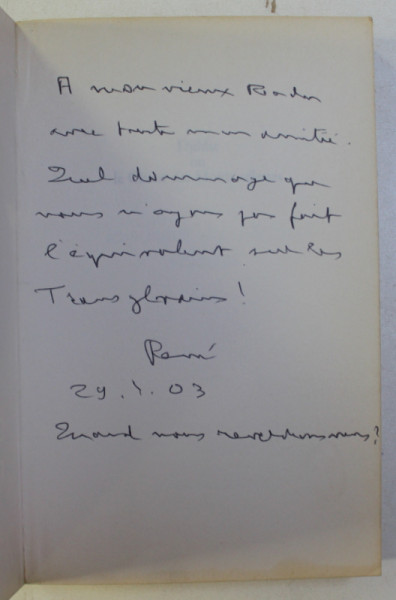 A mon vieux Radu
avec toute mon amitié.
Quel dommage que
nous n'ayons pas fait
l'équivalent sur les
!
René
29. . 03
Quand nous reverrons nous?